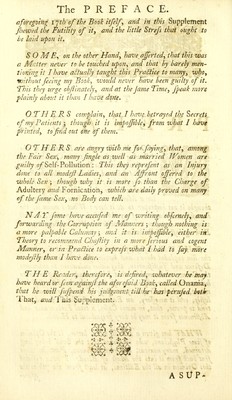 The PREFACE.
aforegoing 17th of the Book itself, and in this Supplement
shewed the Futility of it, and the little Stress that ought to
be laid upon it.
SOME, on the other Hand, have asserted, that this was
a Matter never to be touched upon, and that by barely men-
tioning it I have actually taught this Practice to many, who,
without seeing my Book, would never have been guilty of it.
This they urge obstinately, and at the same Time, speak more
plainly about it than I have done.
OTHERS complain, that I have betrayed the Secrets
of my Patients; though it is impossible, from what I have
printed, to find out one of them.
OTHERS are angry with me for saying, that, among
the Fair Sex, many single as well as married Women are
guilty of Self-Pollution: This they represent as an Injury
done to all modest Ladies, and an Affront offered to the
whole Sex; though why it is more so than the Charge of
Adultery and Fornication, which are daily proved in many
of the same Sex, no Body can tell.
NAY some have accused me of writing obscenely, and
forwarding the Corruption of Manners; though nothing is
a more palpable Calumny; and it is impossible, either in
Theory to recommend Chastity in a more serious and cogent
Manner, or in Practice to express what I had to say more
modestly than I have done.
THE Reader, therefore, is desired, whatever he may
have heard or seen against the aforesaid Book, called Onania,
that he will suspend his Judgment till he has perused both
That, and This Supplement.
A SUP-